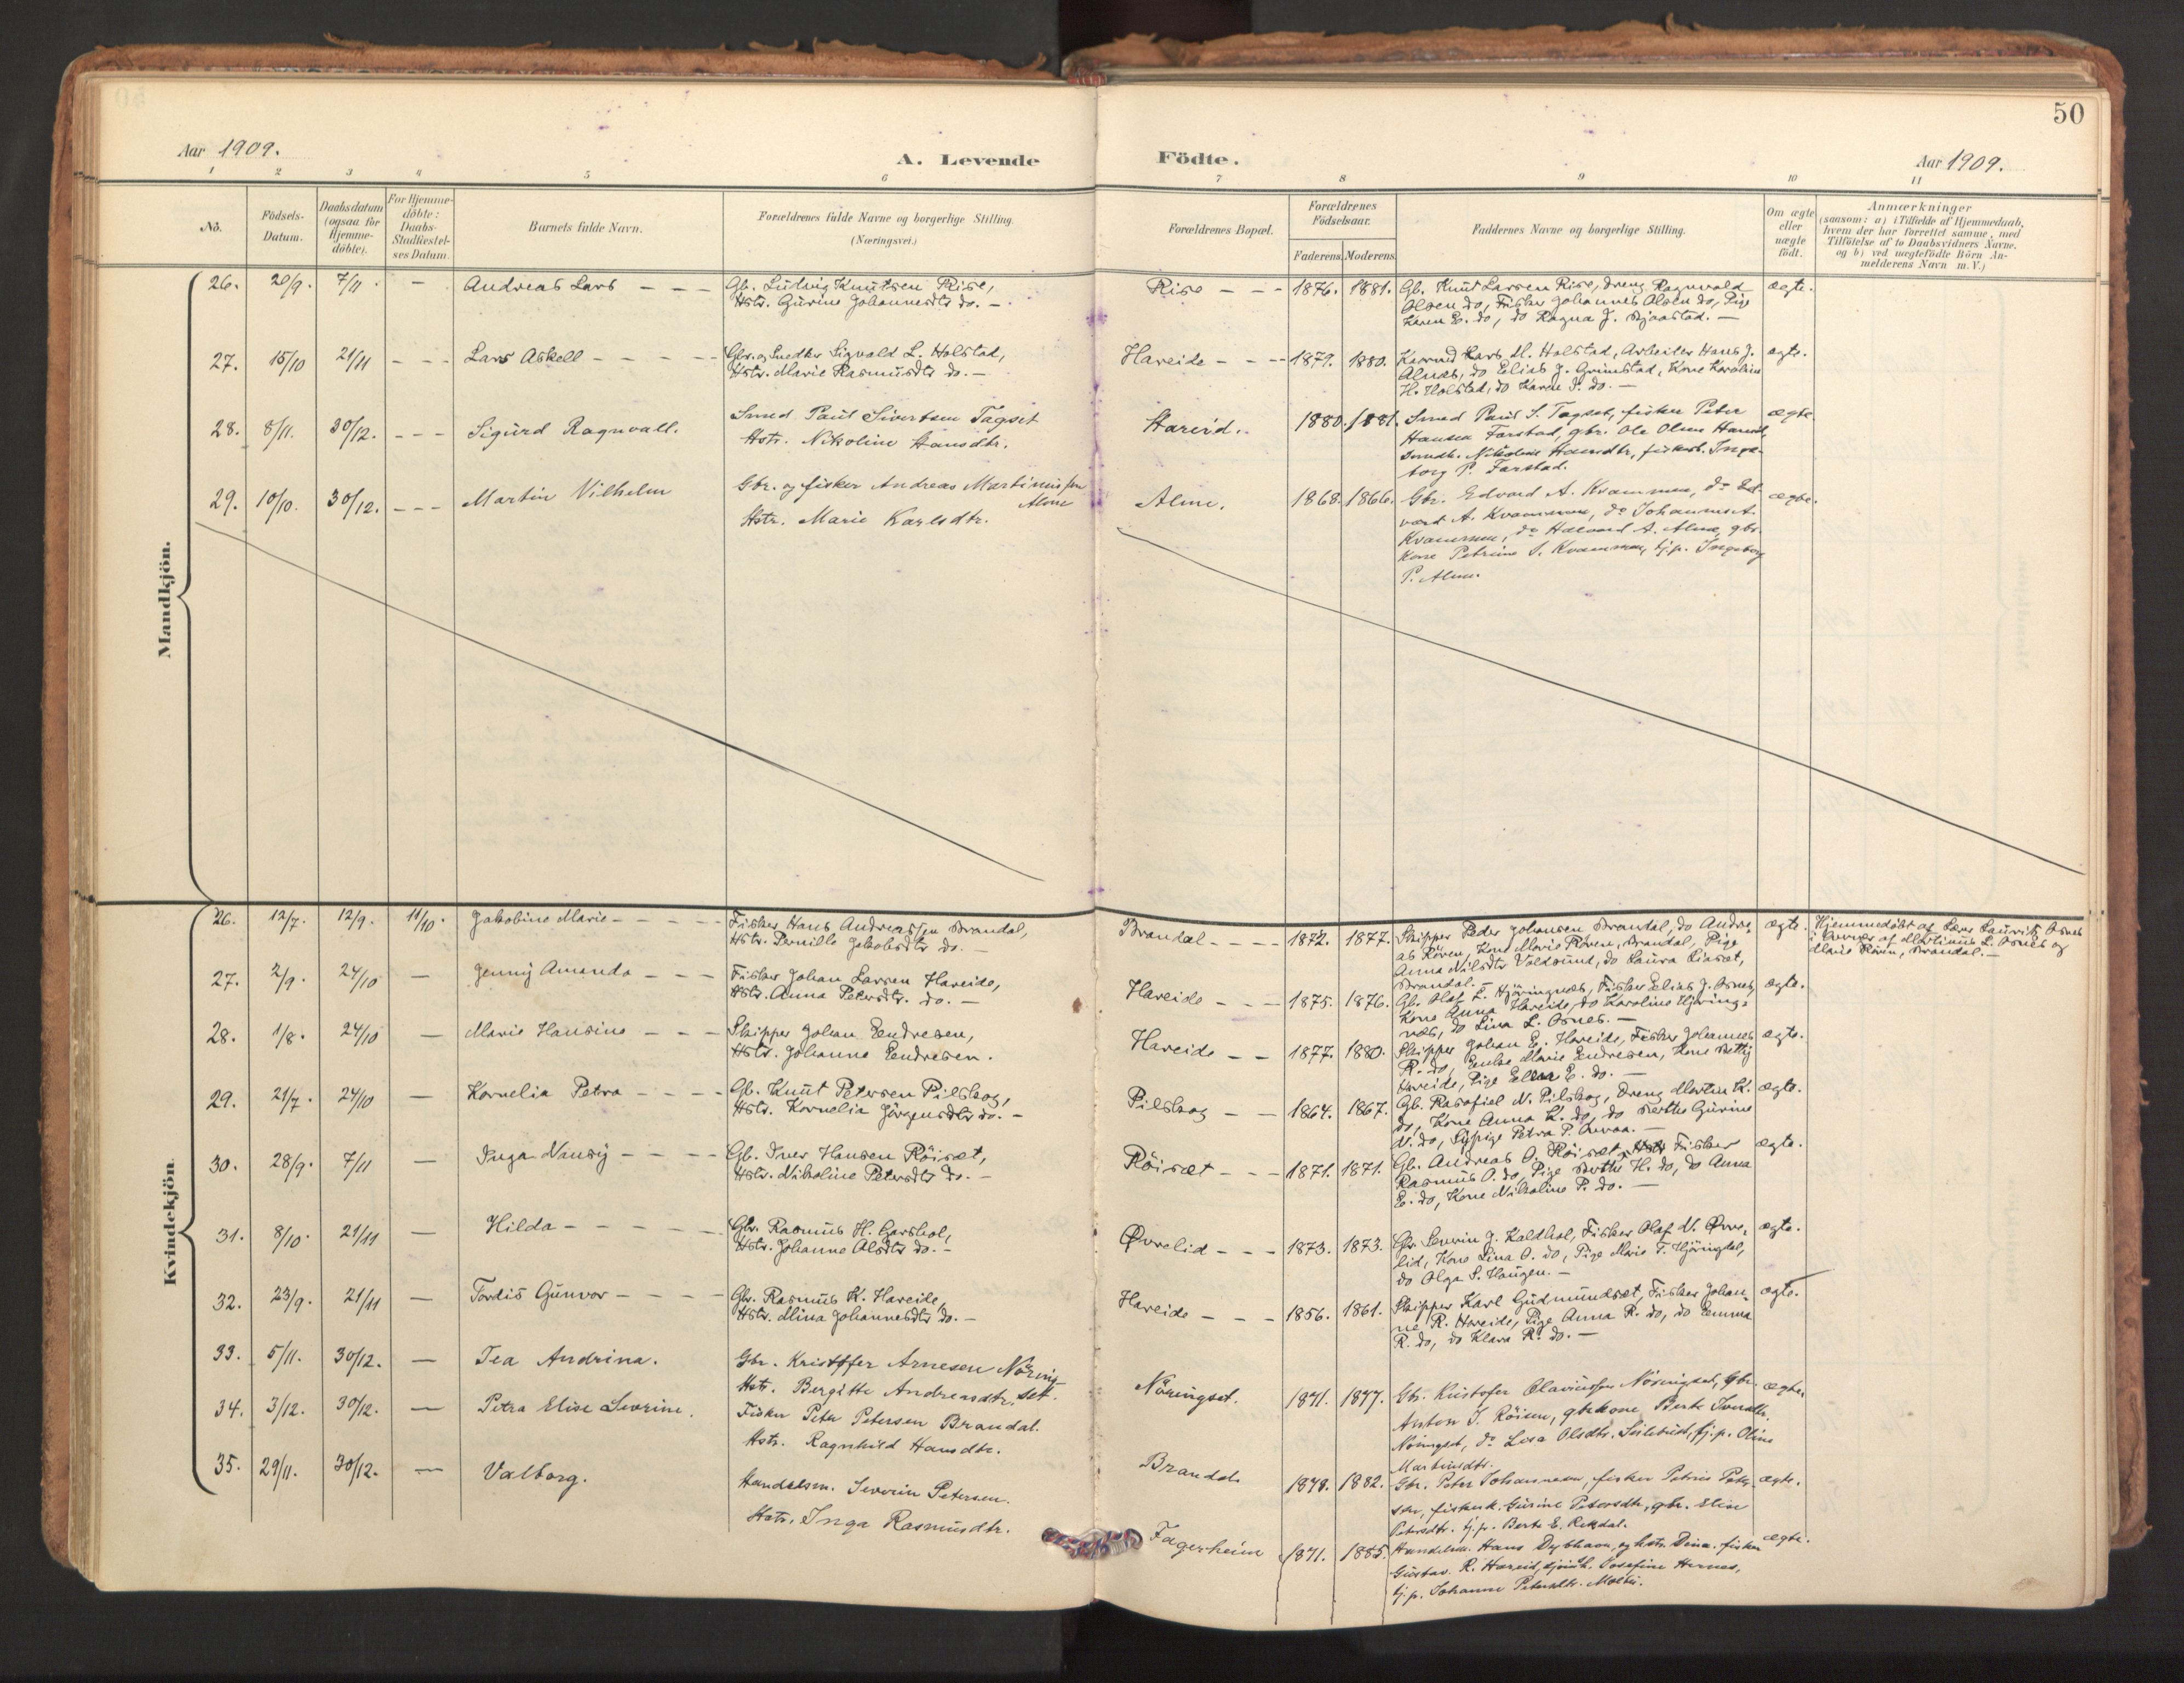 50
Aar 1909.
A. Levende
Födte.
Aar 1909.
1 2 3 4 5 6 7 8 9 10 11
No.
Födsels-Datum.
Daabsdatum (ogsaa for Hjemme-döbte).
For Hjemme-döbte: Daabs-Stadfæstel-ses Datum.
Barnets fulde Navn.
Forældrenes fulde Navne og borgerlige Stilling. (Næringsvei.)
Forældrenes Bopæl.
Forældrenes Födselsaar.
Faderens. Moderens.
Faddernes Navne og borgerlige Stilling.
Om ægte eller uægte födt.
Anmærkninger
(saasom: a) i Tilfælde af Hjemmedaab,
hvem der har forrettet samme, med
Tilföielse af to Daabsvidners Navne.
og b) ved uægtefödte Börn An-
melderens Navn m. V.)
Mandkjön.
26. 20/9. 7/11 - Andreas Lars - - -
Gb. Ludvig Knutsen Rise,
Hstr. Gurine Johannesdtr do. -
Rise - - - 1876. 1881.
Gb. Knut Larsen Rise, Dreng Ragnvald
Olsen do, Fisker Johannes Olsen do, Pige
Karen E. do, do Ragna J. -
ægte.
27. 15/10 21/11 - - - Lars Askell - - - -
Gbr. og Snedker Sigvald L. Holstad,
Hstr. Marie Rasmusdtr do. -
Hareide - - - 1879. 1880.
Lars M. Holstad, Arbeider Hans J.
Alnæs, do Elias J. Grimstad, Kone Karoline
H. Holstad, do Karen P. do. -
ægte.
28. 8/11. 30/12. - - - Sigurd Ragnvall.
Smed Paul Sivertsen Tagset
Hstr. Nikoline Hansdtr.
Hareid. 1880. 1881.
Smed Paul S. Tagset, fisker Peter
Hansen Farstad, gbr. Ole Olsen
Nikoline Hansdtr, Inge-
borg P. Farstad.
ægte
29. 10/10. 30/12. - - - Martin Vilhelm
Gbr. og fisker Andreas Martinussen
Alme
Hstr. Marie Karlsdtr.
Alme. 1868. 1866.
Gbr. Edvard A. Kvammen, do
A. Kvammen, do Johannes A.
Kvammen, do Halvard A. Alme, gbr.
kone Petrine S. Kvammen, tj.p. Ingeborg
P. Alme.
ægte.
Kvindekjön.
26. 12/7. 12/9. 11/10. Jakobine Marie - - - -
Fisker Hans Andreassen Brandal,
Hstr. Pernille Jakobsdtr do. -
Brandal - - - - 1872. 1877.
Skipper Peder Johansen Brandal, do Andre-
as Rören, Kone Marie Rören, Brandal, Pige
Anna Nilsdtr Voldsund, do Laura Liaset,
Brandal. -
ægte.
Hjemmedöbt af Lærer Laurits Osnes
i Nærvær af Martinus L. Osnes og
Marie Rören, Brandal. -
27. 2/9. 24/10 - Jenny Amanda - - -
Fisker Johan Larsen Hareide,
Hstr. Anna Petersdtr. do. -
Hareide - - - 1875. 1876.
Gb. Olaf L. Hjöringnæs, Fisker Elias J. Osnes,
Kone Anna Hareide, do Karoline Hjöring-
næs, do Lina L. Osnes. -
ægte.
28. 1/8. 24/10 - Marie Hansine - - -
Skipper Johan Eendresen,
Hstr. Johanne Eendresen.
Hareide - - 1877. 1880.
Skipper Johan E. Hareide, Fisker Johannes
R. do, Enke Marie Eendresen, Kone Betty
Hareide, Pige Ellen E. do. -
ægte.
29. 21/7. 24/10 - Kornelia Petra - - - -
Gb. Knut Petersen Pilskog,
Hstr. Kornelia Jörgensdtr do. -
Pilskog - - 1864. 1867.
Gb. Rasafiel N. Pilskog, Dreng Martin K.
do, Kone Anna K. do, do Berthe Gurine
N. do, Sypige Petra P. -
ægte.
30. 28/9. 7/11 - Inga Nansy - - - -
Gb. Iver Hansen Röiset,
Hstr. Nikoline Petersdtr do. -
Röiset - - - 1871. 1871.
Gb. Andreas O. Röiset, Fisker
Rasmus O. do, Pige Berthe H. do, do Anna
E. do, Kone Nikoline P. do. -
ægte.
31. 8/10. 21/11 - Hilda - - - - -
Gbr. Rasmus H. Garshol,
Hstr. Johanne Olsdtr do. -
Övrelid - - - 1873. 1873.
Gbr. Severin J. Kaldhol, Fisker Olaf N. Övre-
lid, Kone Lina O. do, Pige Marie T. Hjöringdal,
do Olga S. Haugen. -
ægte.
32. 23/9. 21/11 - Tordis Gunvor - - - -
Gbr. Rasmus K. Hareide,
Hstr. Mina Johannesdtr do. -
Hareide - - - 1856. 1861.
Skipper Karl Gudmundset, Fisker Johan-
ne R. Hareide, Pige Anna R. do, do Eemma
R. do, do Klara R. do. -
ægte.
33. 5/11. 30/12. - Tea Andrina.
Gbr. Kristoffer Arnesen Nöring-
Hstr. Bergitte Andreasdtr. set.
Nöringset. 1871. 1877.
Gbr. Kristofer Olaviussen Nöringset, Gbr.
Anton I. Röisen, gbrkone Berte Iversdtr.
Nöringset, do Lesa Olsdtr. tj.p. Oline
Martinsdtr.
ægte.
34. 3/12. 30/12. - Petra Elise Severine.
Fisker Peter Petersen Brandal.
Hstr. Ragnhild Hansdtr.
Brandal. 1878. 1882.
Gbr. Peter Johannesen, fisker Petrus Peter-
sen, fiskerk. Gurine Petersdtr, gbr. Elise
Petersdtr. tj.p. Berte E. Rekdal.
ægte.
35. 29/11. 30/12. - Valborg.
Handelsm. Severin Petersen.
Hstr. Inga Rasmusdtr.
Fagerheim 1871. 1885.
Handelsm. Hans Dybhavn, og hstr. Dina. fisker
Gustav R. Hareid, Josefine Hernes,
tj.p. Johanne Petersdtr. Moltu.
ægte.